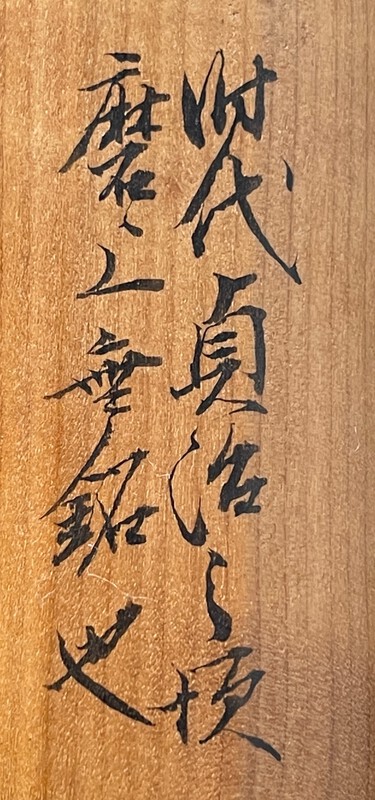 時代貞治之頃
磨上無銘也